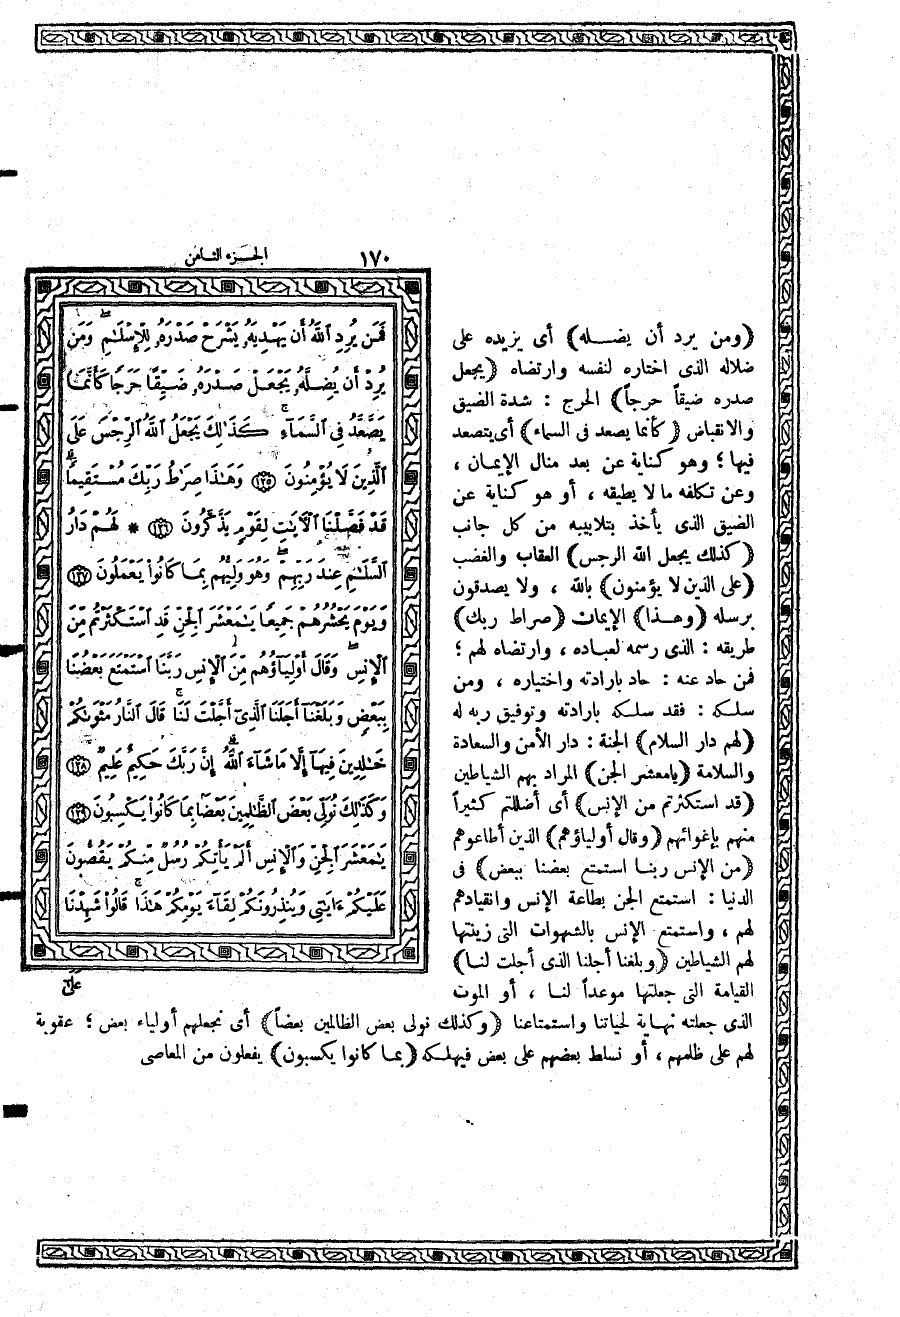 ١٧٠
الجزء الثامن
فَمَن يُرِدِ ٱللَّهُ أَن يَهْدِيَهُۥ يَشْرَحْ صَدْرَهُۥ لِلْإِسْلَٰمِ ۖ وَمَن
يُرِدْ أَن يُضِلَّهُۥ يَجْعَلْ صَدْرَهُۥ ضَيِّقًا حَرَجًا كَأَنَّمَا
يَصَّعَّدُ فِي ٱلسَّمَآءِ ۚ كَذَٰلِكَ يَجْعَلُ ٱللَّهُ ٱلرِّجْسَ عَلَى
ٱلَّذِينَ لَا يُؤْمِنُونَ ١٢٥ وَهَٰذَا صِرَٰطُ رَبِّكَ مُسْتَقِيمًا ۗ
قَدْ فَصَّلْنَا ٱلْآيَٰتِ لِقَوْمٍ يَذَّكَّرُونَ ١٢٦ * لَهُمْ دَارُ
ٱلسَّلَٰمِ عِندَ رَبِّهِمْ ۖ وَهُوَ وَلِيُّهُم بِمَا كَانُوا۟ يَعْمَلُونَ ١٢٧
وَيَوْمَ يَحْشُرُهُمْ جَمِيعًا يَٰمَعْشَرَ ٱلْجِنِّ قَدِ ٱسْتَكْثَرْتُم مِّنَ
ٱلْإِنسِ ۖ وَقَالَ أَوْلِيَآؤُهُم مِّنَ ٱلْإِنسِ رَبَّنَا ٱسْتَمْتَعَ بَعْضُنَا
بِبَعْضٍ وَبَلَغْنَآ أَجَلَنَا ٱلَّذِيٓ أَجَّلْتَ لَنَا ۚ قَالَ ٱلنَّارُ مَثْوَىٰكُمْ
خَٰلِدِينَ فِيهَآ إِلَّا مَا شَآءَ ٱللَّهُ ۗ إِنَّ رَبَّكَ حَكِيمٌ عَلِيمٌ ١٢٨
وَكَذَٰلِكَ نُوَلِّي بَعْضَ ٱلظَّٰلِمِينَ بَعْضًا بِمَا كَانُوا۟ يَكْسِبُونَ ١٢٩
يَٰمَعْشَرَ ٱلْجِنِّ وَٱلْإِنسِ أَلَمْ يَأْتِكُمْ رُسُلٌ مِّنكُمْ يَقُصُّونَ
عَلَيْكُمْ ءَايَٰتِي وَيُنذِرُونَكُمْ لِقَآءَ يَوْمِكُمْ هَٰذَا ۚ قَالُوا۟ شَهِدْنَا
عَلَىٰٓ
(ومن يرد أن يضله) أى يزيده على
ضلاله الذى اختاره لنفسه وارتضاه (يجعل
صدره ضيقاً حرجاً) الحرج : شدة الضيق
والانقباض (كأنما يصعد فى السماء) أى يتصعد
فيها ؛ وهو كناية عن بعد منال الإيمان ،
وعن تكلفه ما لا يطيقه ، أو هو كناية عن
الضيق الذى يأخذ بتلابيبه من كل جانب
(كذلك يجعل الله الرجس) العقاب والغضب
(على الذين لا يؤمنون) بالله ، ولا يصدقون
برسله (وهذا) الإيمان (صراط ربك)
طريقه : الذى رسمه لعباده ، وارتضاه لهم ؛
فمن حاد عنه : حاد بارادته واختياره ، ومن
سلكه : فقد سلكه بارادته وتوفيق ربه له
(لهم دار السلام) الجنة : دار الأمن والسعادة
والسلامة (يامعشر الجن) المراد بهم الشياطين
(قد استكثرتم من الإنس) أى أضللتم كثيراً
منهم بإغوائهم (وقال أولياؤهم) الذين أطاعوهم
(من الإنس ربنا استمتع بعضنا ببعض) فى
الدنيا : استمتع الجن بطاعة الإنس وانقيادهم
لهم ، واستمتع الإنس بالشهوات التى زينتها
لهم الشياطين (وبلغنا أجلنا الذى أجلت لنا)
القيامة التى جعلتها موعداً لنا ، أو الموت
الذى جعلته نهاية لحياتنا واستمتاعنا (وكذلك نولى بعض الظالمين بعضاً) أى نجعلهم أولياء بعض ؛ عقوبة
لهم على ظلمهم ، أو نسلط بعضهم على بعض فيهلكه (بما كانوا يكسبون) يفعلون من المعاصى